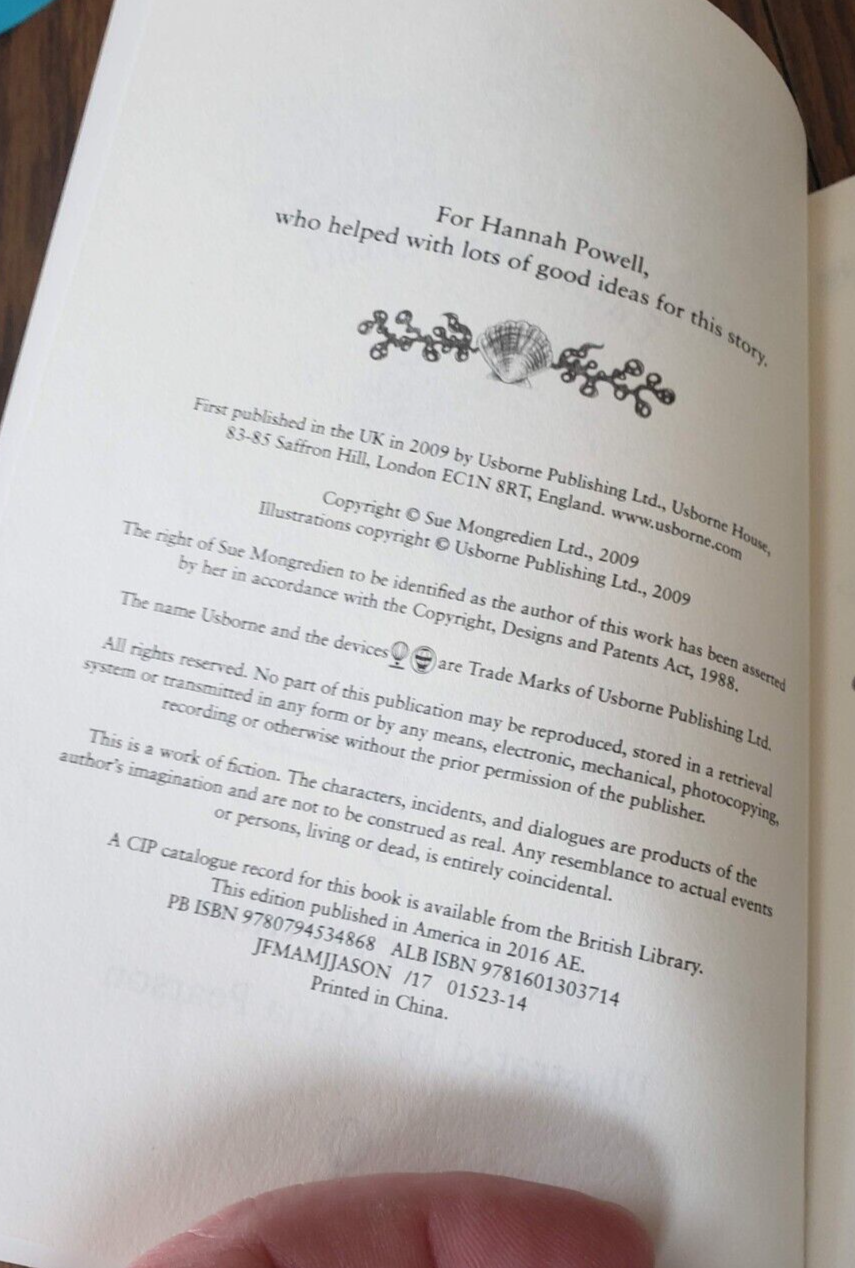 For Hannah Powell,
who helped with lots of good ideas for this story.
First published in the UK in 2009 by Usborne Publishing Ltd., Usborne House,
83-85 Saffron Hill, London EC1N 8RT, England. www.usborne.com
Copyright © Sue Mongredien Ltd., 2009
Illustrations copyright © Usborne Publishing Ltd., 2009
The right of Sue Mongredien to be identified as the author of this work has been asserted
by her in accordance with the Copyright, Designs and Patents Act, 1988.
The name Usborne and the devices are Trade Marks of Usborne Publishing Ltd.
All rights reserved. No part of this publication may be reproduced, stored in a retrieval
system or transmitted in any form or by any means, electronic, mechanical, photocopying,
recording or otherwise without the prior permission of the publisher.
This is a work of fiction. The characters, incidents, and dialogues are products of the
author's imagination and are not to be construed as real. Any resemblance to actual events
or persons, living or dead, is entirely coincidental.
A CIP catalogue record for this book is available from the British Library.
This edition published in America in 2016 AE.
PB ISBN 9780794534868 ALB ISBN 9781601303714
JFMAMJJASON /17 01523-14
Printed in China.